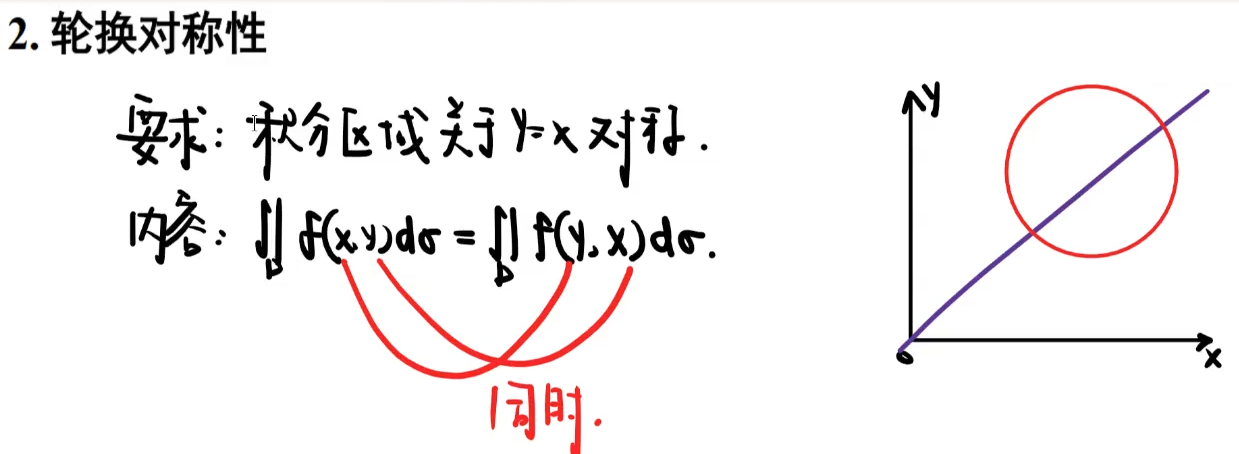 2. 轮换对称性
要求: 积分区域关于 y=x 对称.
内容: ∬_D f(x,y)dσ = ∬_D f(y,x)dσ.
同时.
y
o
x